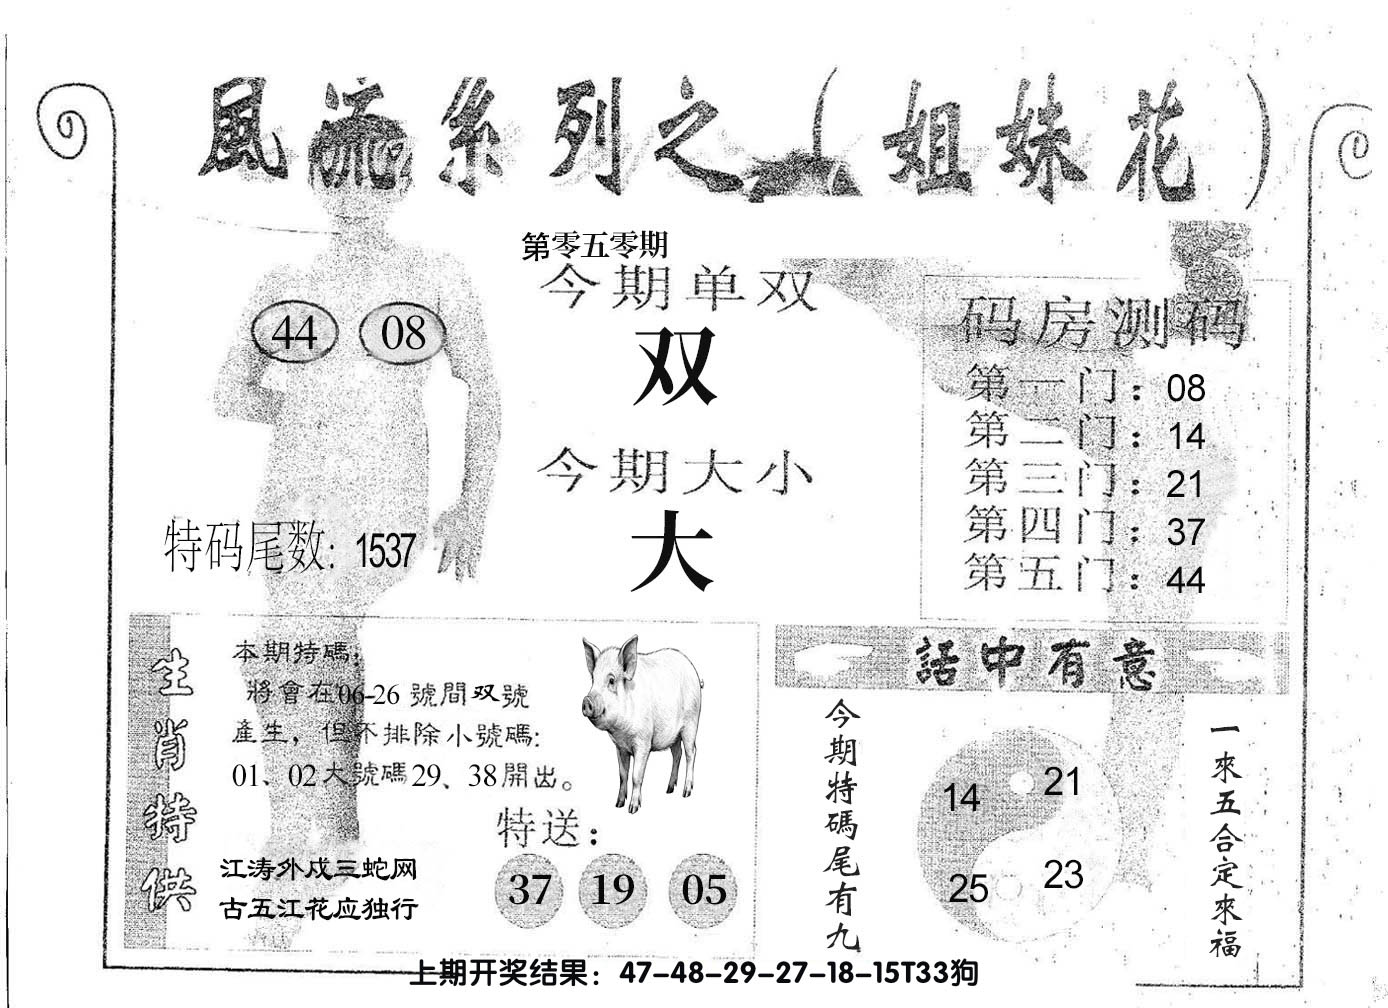 風流系列之（姐妹花）
第零五零期
今期单双
双
今期大小
大
44 08
特码尾数: 1537
码房测码
第一门：08
第二门：14
第三门：21
第四门：37
第五门：44
生肖特供
本期特碼，
將會在06-26 號間双號
產生，但不排除小號碼:
01、02大號碼29、38開出。
特送：
37 19 05
江涛外戍三蛇网
古五江花应独行
話中有意
今期特碼尾有九
14 21
25 23
一來五合定來福
上期开奖结果：47-48-29-27-18-15T33狗